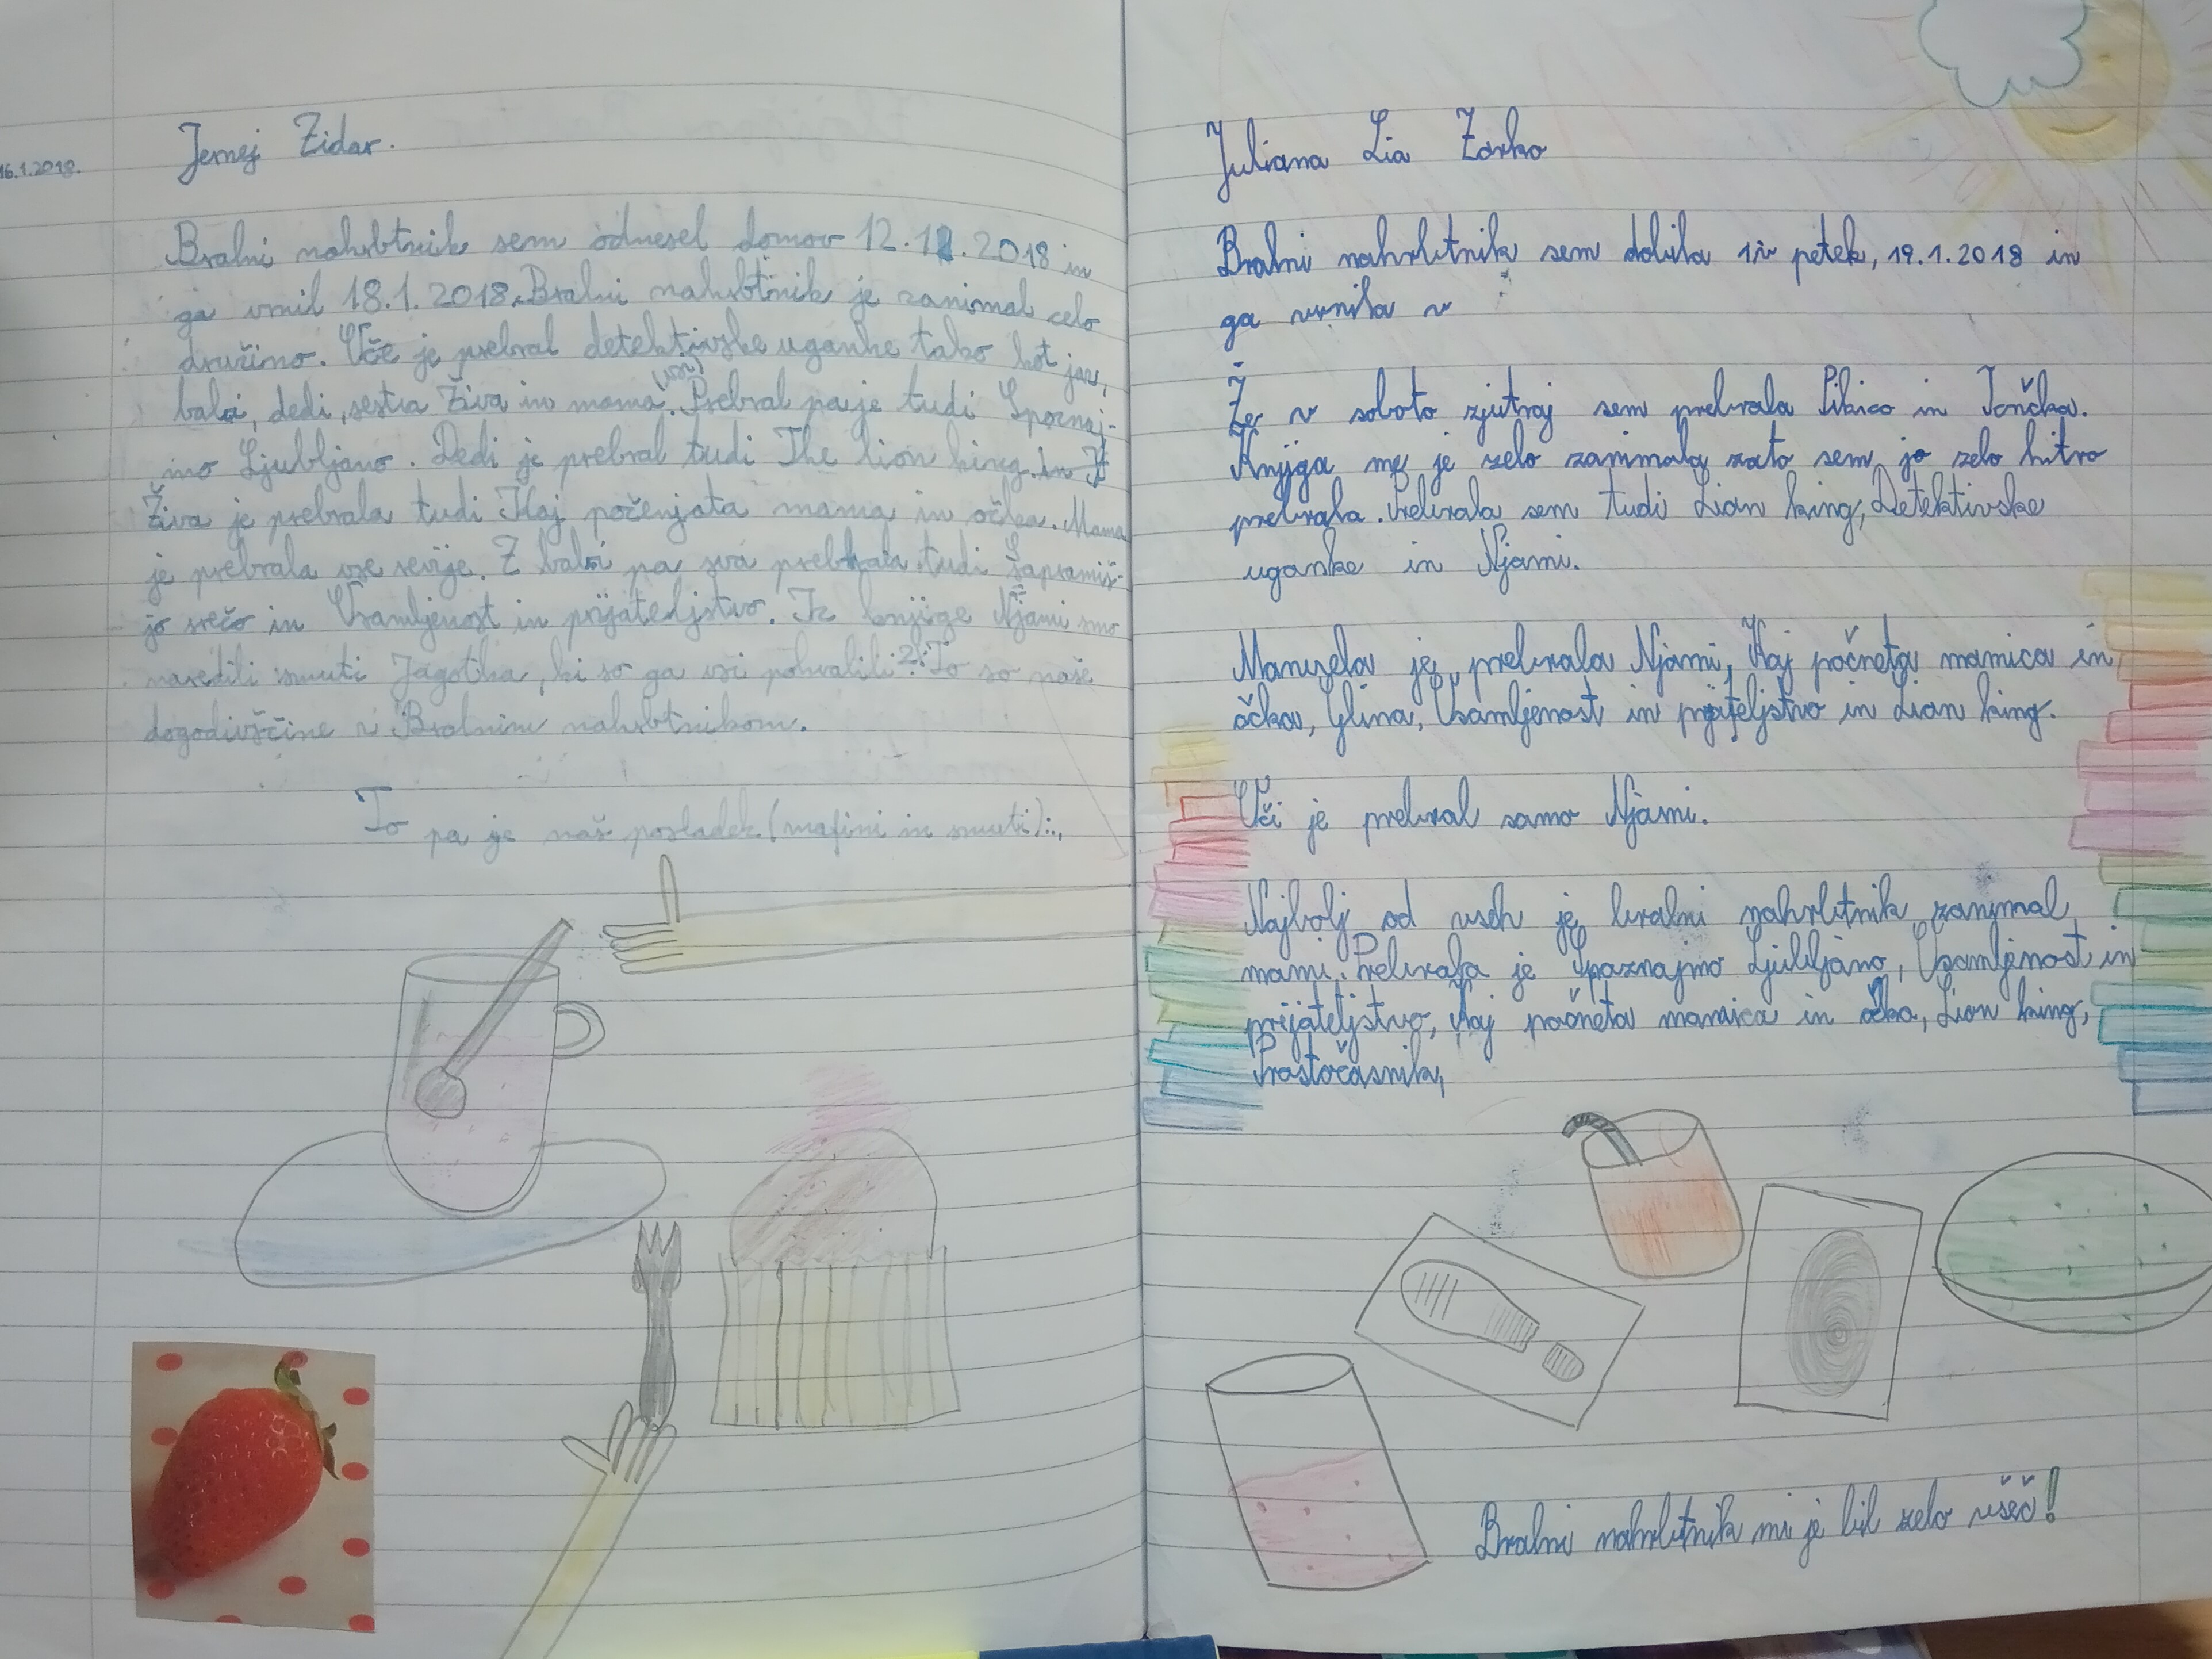 16.1.2018.
Jernej Zidar.
Bralni nahrbtnik sem odnesel domov 12.12.2018 in
ga vrnil 18.1.2018. Bralni nahrbtnik je zanimal celo
družino. Oče je prebral detektivske uganke tako kot jaz,
babi, dedi, sestra Živa in mama. Prebral pa je tudi Spoznaj-
mo Ljubljano. Dedi je prebral tudi The lion king.
Živa je prebrala tudi Kaj počenjata mama in očka. Mama
je prebrala vse revije. Z babi pa sva prebrala tudi Šapramiš-
jo srečo in Osamljenost in prijateljstvo. Iz knjige Njami smo
naredili smuti Jagotka, ki so ga vsi pohvalili. To so naše
dogodivščine z Bralnim nahrbtnikom.
To pa je naš posladek (mafini in smuti):
Juliana Lia Zorko
Bralni nahrbtnik sem dobila v petek, 19.1.2018 in
ga vrnila v
Že v soboto zjutraj sem prebrala Pikico in Tončka.
Knjiga me je zelo zanimala zato sem jo zelo hitro
prebrala. Prebrala sem tudi Lion king, Detektivske
uganke in Njami.
Manuela je prebrala Njami, Kaj počneta mamica in
očka, Glina, Osamljenost in prijateljstvo in Lion king.
Oči je prebral samo Njami.
Najbolj od vseh je bralni nahrbtnik zanimal
mami. Prebrala je Spoznajmo Ljubljano, Osamljenost in
prijateljstvo, Kaj počneta mamica in očka, Lion king,
Prostočasnik,
Bralni nahrbtnik mi je bil zelo všeč!